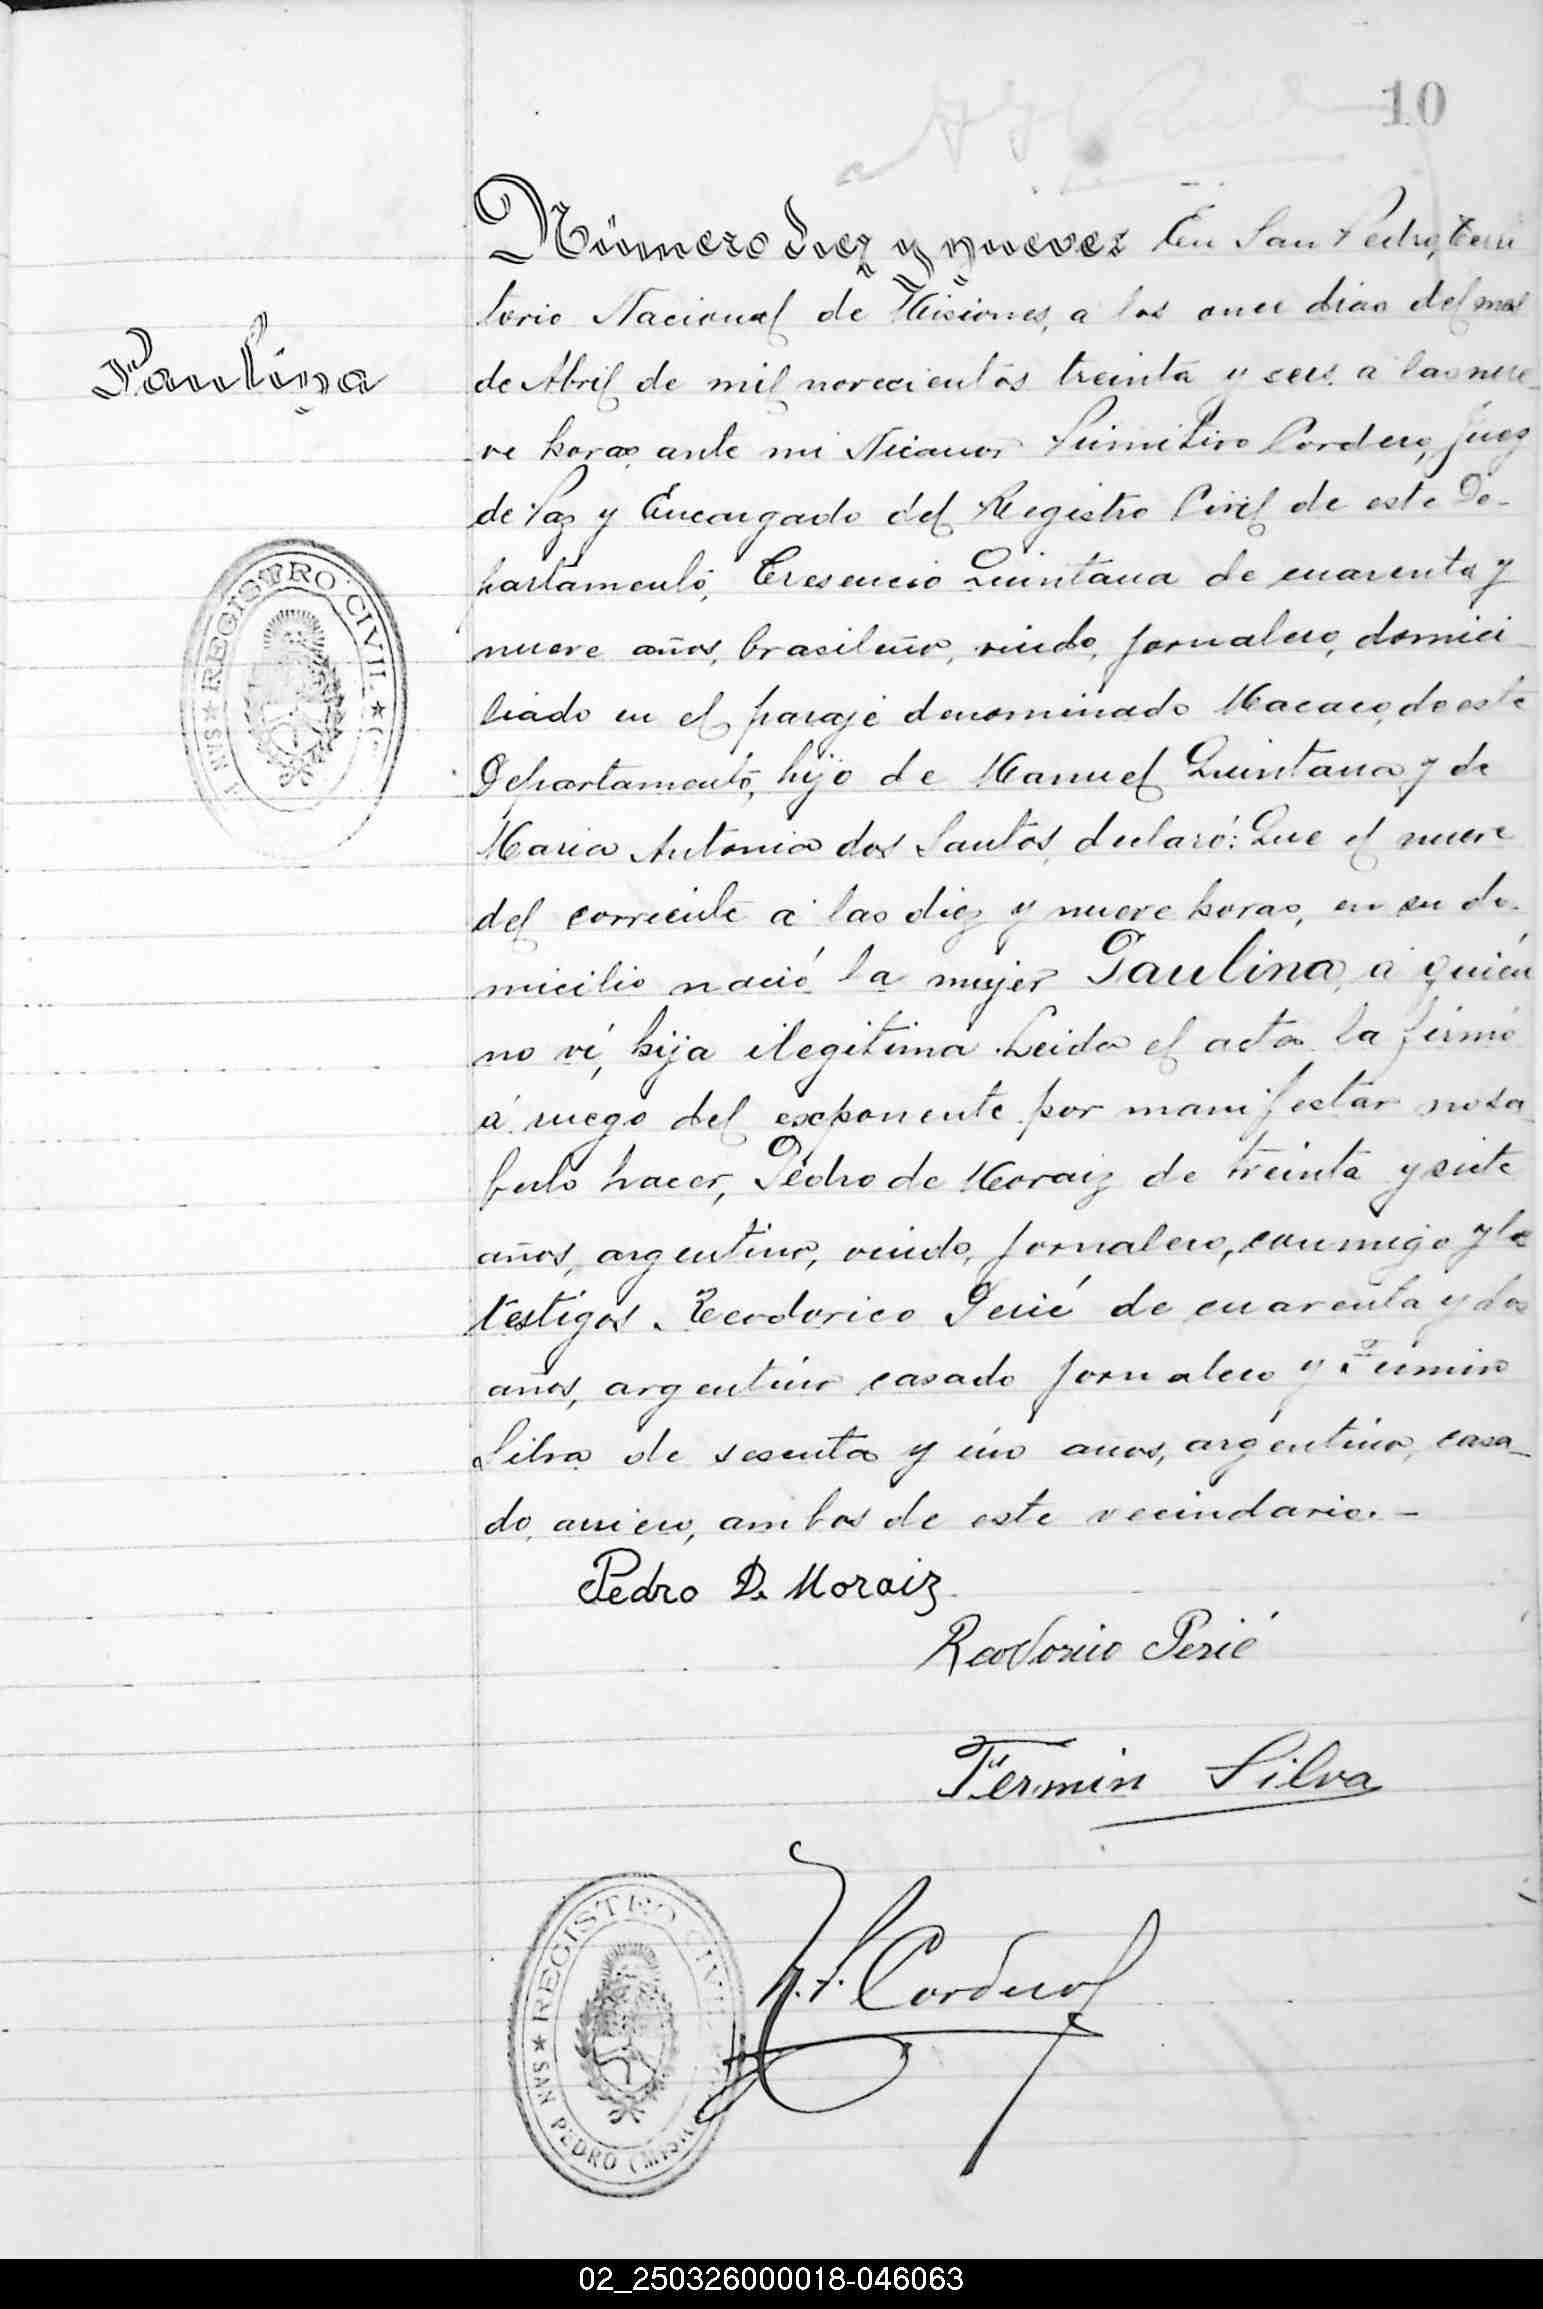 10
Número diez y nueve: En San Pedro, Terri
torio Nacional de Misiones, a los once dias del mes
Paulina
de Abril de mil novecientos treinta y seis a las nue-
ve horas, ante mi Nicanor Primitivo Cordero, Juez
de Paz y Encargado del Registro Civil de este De-
partamento, Cresencio Quintana de cuarenta y
nueve años, brasileño, viudo, jornalero, domici-
liado en el paraje denominado Macaco, de este
Departamento, hijo de Manuel Quintana y de
Maria Antonia dos Santos, declaró: Que el nueve
del corriente a las diez y nueve horas, en su do-
micilio nació la mujer Paulina, a quién
no ví, hija ilegitima. Leida el acta la firmó
á ruego del exponente por manifestar no sa
berlo hacer, Pedro de Moraiz de treinta y siete
años, argentino, viudo, jornalero, conmigo y los
testigos Reodorico Perié de cuarenta y dos
años, argentino casado jornalero y Fermin
Silva de sesenta y úno años, argentino, casa-
do, arriero, ambos de este vecindario.-
Pedro D. Moraiz
Reodorico Perié
Fermin Silva
N. P. Cordero
REGISTRO CIVIL
SAN
REGISTRO CIVIL
SAN PEDRO (MISIONES
02_250326000018-046063